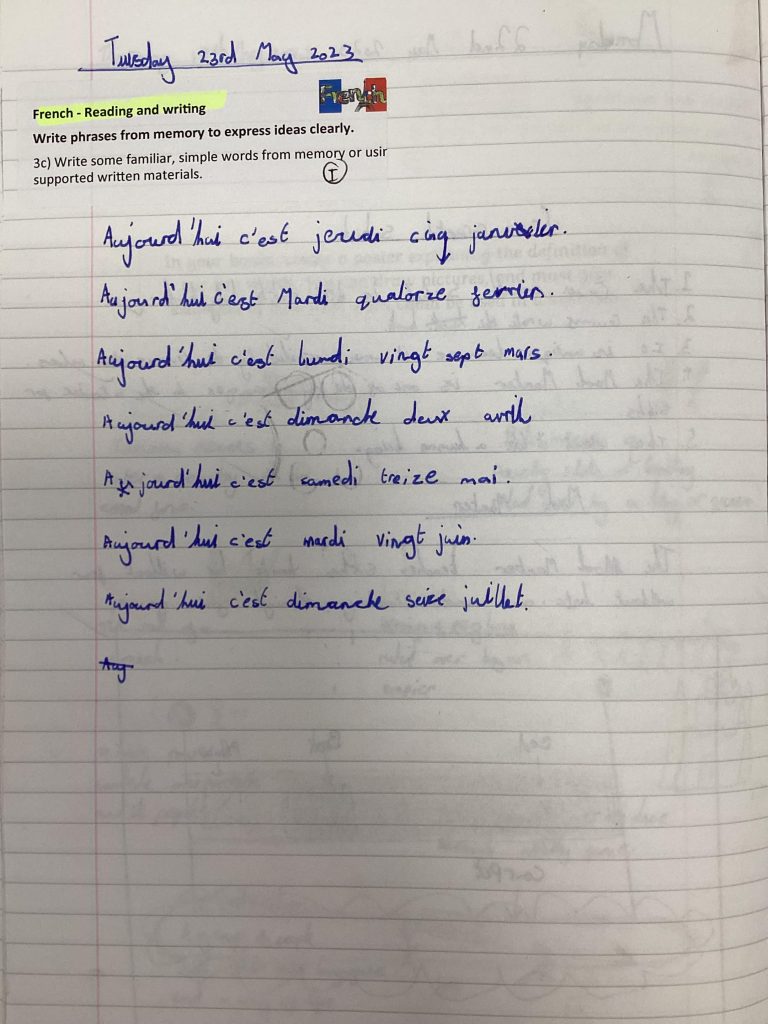 Tuesday 23rd May 2023
French
French - Reading and writing
Write phrases from memory to express ideas clearly.
3c) Write some familiar, simple words from memory or usin
supported written materials.
I
Aujourd'hui c'est jeudi cinq janvier.
Aujourd'hui c'est Mardi quatorze ferrier.
Aujourd'hui c'est lundi vingt sept mars.
Aujourd'hui c'est dimanche deux avril
Aujourd'hui c'est samedi treize mai.
Aujourd'hui c'est mardi vingt juin.
Aujourd'hui c'est dimanche seize juillet.
Auj